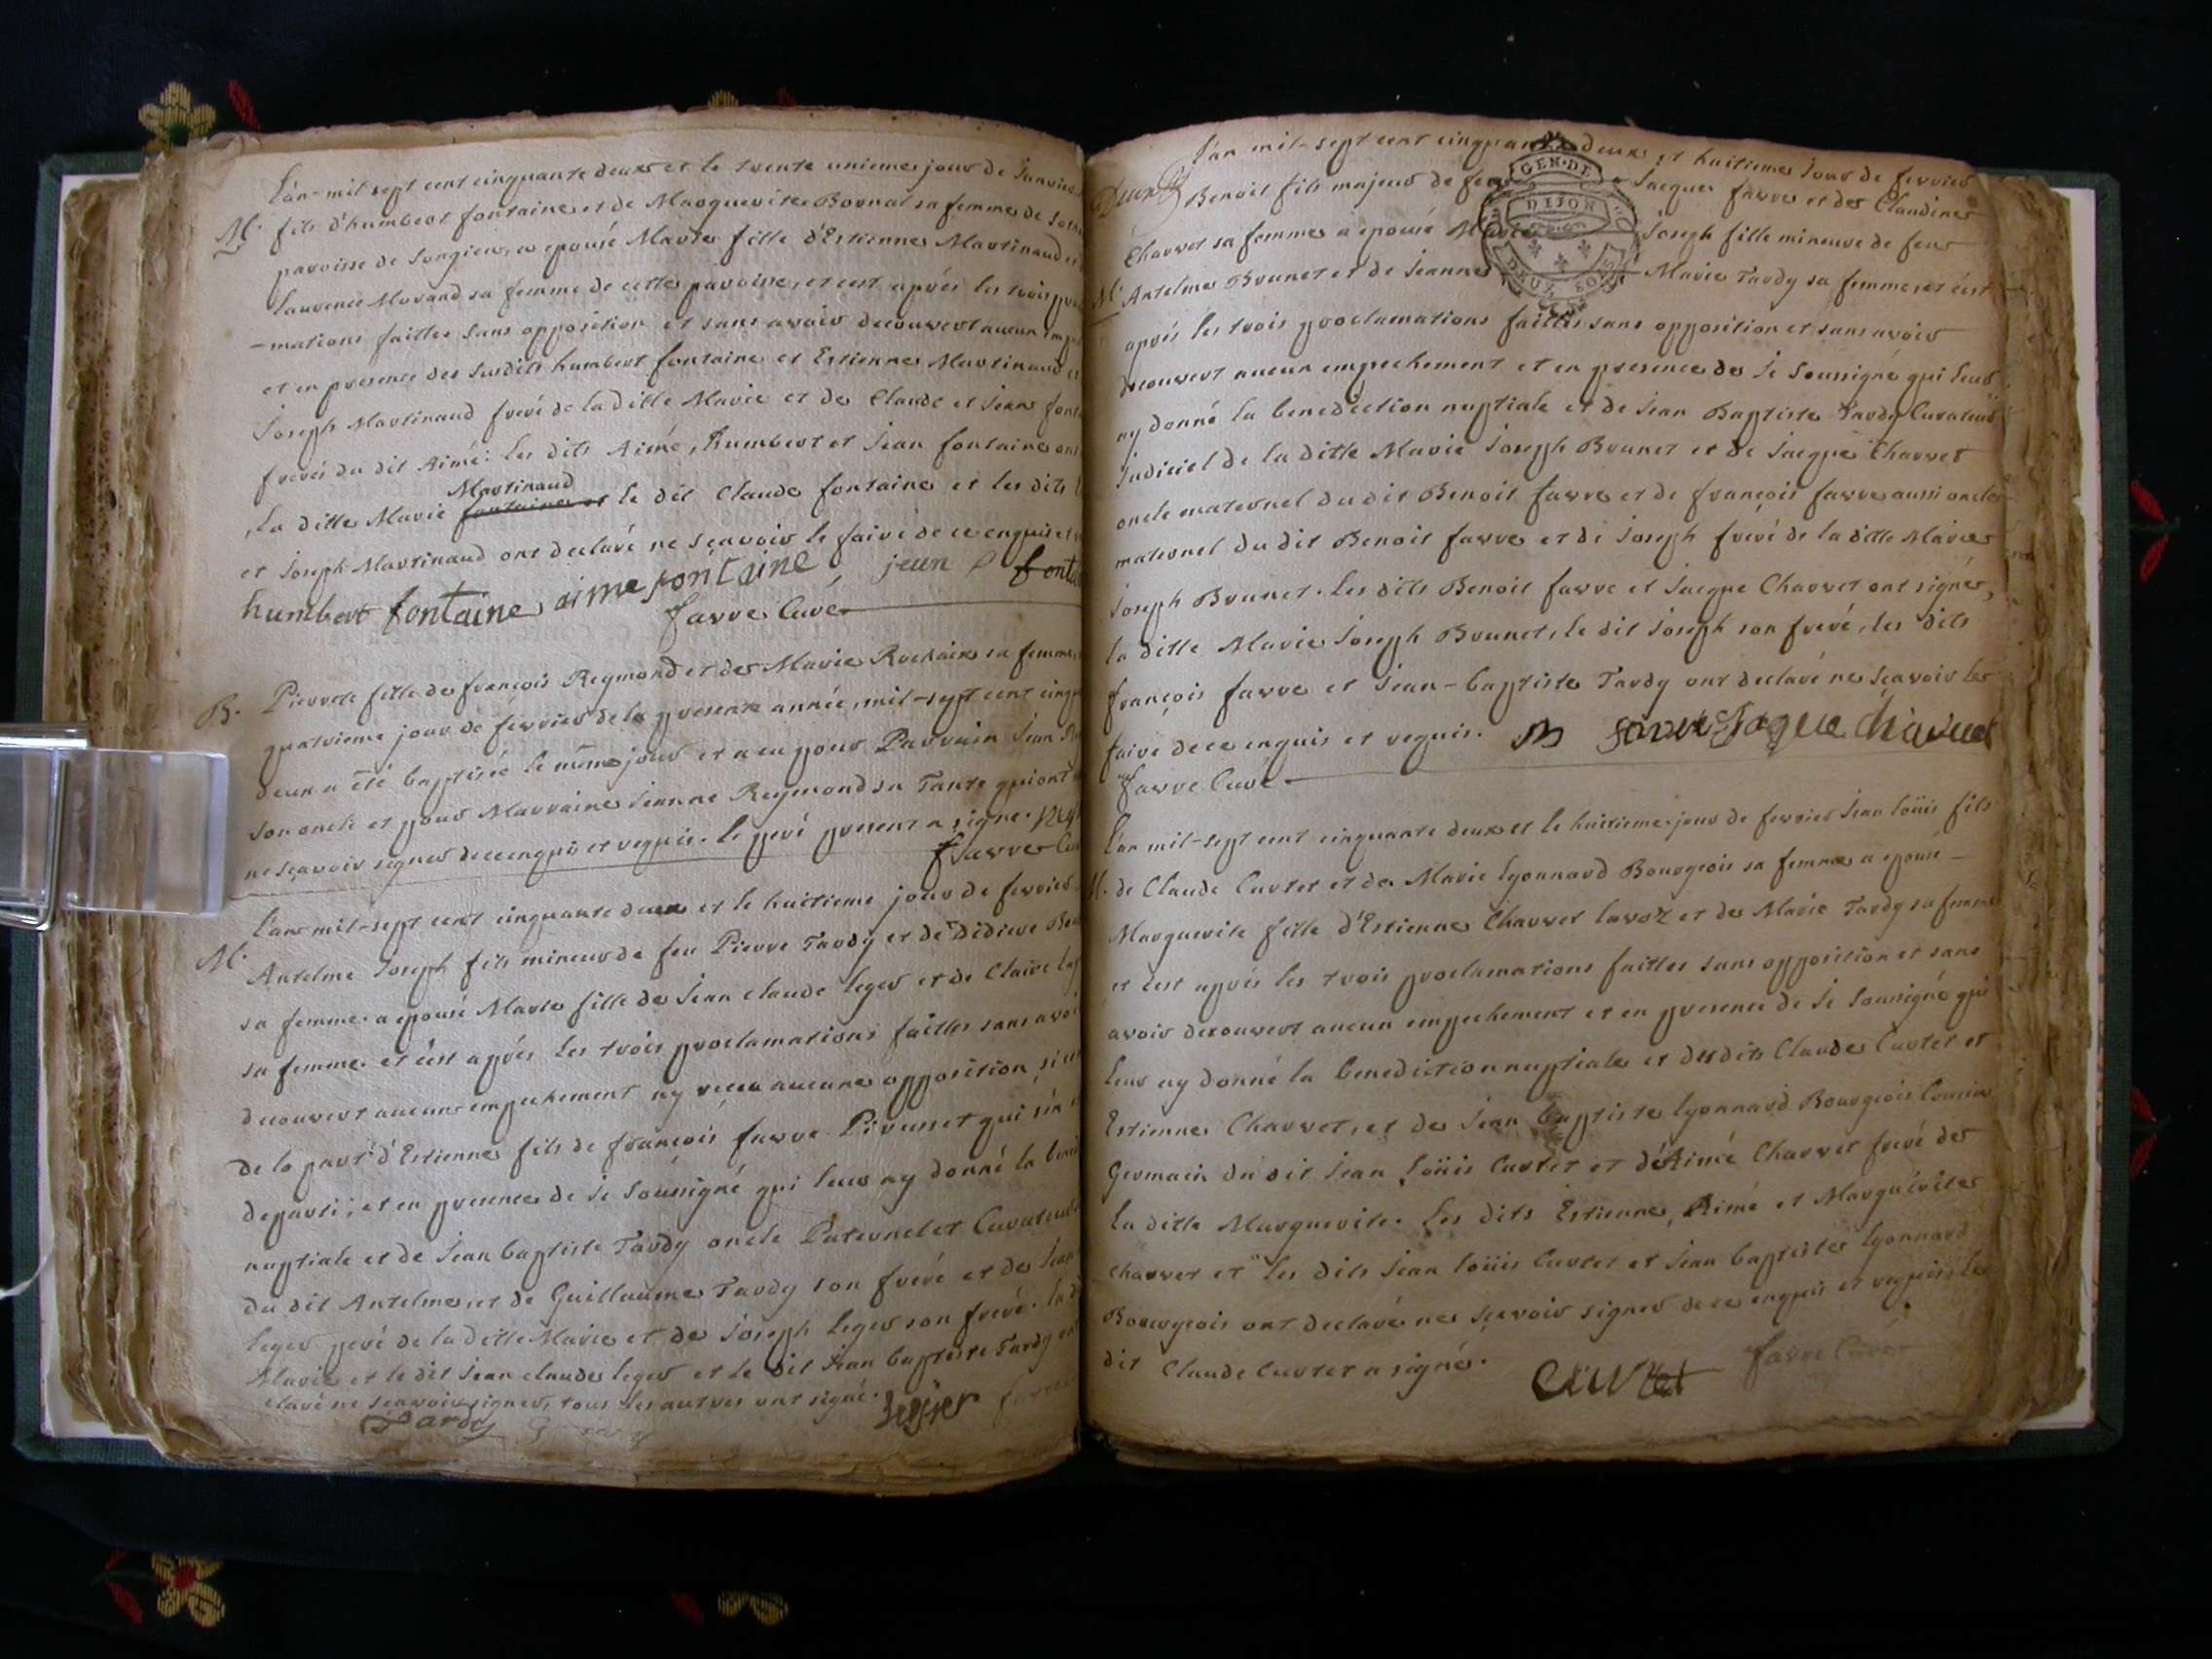 L'an mil sept cent cinquante deux et le trente unieme jour de Janvier
M. fils d'humbert fontaine et de Marguerite Bornat sa femme de
paroisse de Songieu, a epousé Marie fille d'Estienne Martinaud et
Laurence Morand sa femme de cette paroisse, et c'est aprés les trois
-mations faittes sans opposition et sans avoir decouvert aucun
et en presence des susdits humbert fontaine et Estienne Martinaud et
Joseph Martinaud freré de la ditte Marie et de Claude et Jean
frerés du dit Aimé: les dits Aimé, humbert et Jean fontaine ont
Martinaud
, la ditte Marie fontaine et le dit Claude fontaine et les dits
et Joseph Martinaud ont declaré ne sçavoir le faire de ce enquis et
humbert fontaine aime fontaine jean
favre Curé
B. Pierrete fille de françois Reymond et de Marie sa femme,
quatrieme jour de fevrier de la presente année, mil-sept cent
deux a été baptisée le même jour et a eu pour Parrain Jean
son oncle et pour Marraine Jeanne Reymond sa Tante qui ont
ne sçavoir signer de ce enquis et requis. le peré present a signé.
favre
L'an mil-sept cent cinquante deux et le huitieme jour de fevrier
M. Antelme Joseph fils mineur de feu Pierre Tardy et de Didiere
sa femme a epousé Marie fille de Jean claude leger et de Claire
sa femme et c'est aprés les trois proclamations faittes sans avoir
decouvert aucun empechement ny reçeu aucune opposition si
de la part d'Estienne fils de françois favre Pirusset qui s'en
departi; et en presence de Je soussigné qui leur ay donné la
nuptiale et de Jean baptiste Tardy oncle Paternel et Curateur
du dit Antelme, et de Guillaume Tardy son freré et de Jean
leger peré de la ditte Marie et de Joseph leger son freré. la
Marie et le dit Jean claude leger et le dit Jean baptiste Tardy
claré ne sçavoir signer, tous les autres ont signé.
Tardy
L'an mil-sept cent cinquante deux et huitieme Jour de fevrier
Benoit fils majeur de feu Jacques favre et de Claudine
Charvet sa femme a epousé Marie Joseph fille mineure de feu
M. Antelme Brunet et de Jeanne Marie Tardy sa femme, et c'est
aprés les trois proclamations faittes sans opposition et sans avoir
decouvert aucun empechement et en presence de Je Soussigné qui leur
ay donné la benediction nuptiale et de Jean Baptiste Tardy Curateur
Judiciel de la ditte Marie Joseph Brunet et de Jacque Charvet
oncle maternel du dit Benoit favre et de françois favre aussi oncle
maternel du dit Benoit favre et de Joseph freré de la ditte Marie
Joseph Brunet. les dits Benoit favre et Jacque Charvet ont signés,
la ditte Marie Joseph Brunet, le dit Joseph son freré, les dits
françois favre et Jean-baptiste Tardy ont declaré ne sçavoir le
faire de ce enquis et requis. favre Jaque Charvet
favre Curé
GEN. DE
DIJON
DEUX SOLS
L'an mil-sept cent cinquante deux et le huitieme jour de fevrier Jean loüis fils
M. de Claude Curtet et de Marie lyonnard Bourgeois sa femme a epousé
Marguerite fille d'Estienne Charvet lavoz et de Marie Tardy sa femme
et c'est aprés les trois proclamations faittes sans opposition et sans
avoir decouvert aucun empechement et en presence de Je soussigné qui
leur ay donné la benediction nuptiale et des dits Claude Curtet et
Estienne Charvet, et de Jean baptiste lyonnard Bourgeois Cousin
Germain du dit Jean loüis Curtet et d'Aimé Charvet freré de
la ditte Marguerite. les dits Estienne, Aimé et Marguérite
charvet et les dits Jean loüis Curtet et Jean baptiste lyonnard
Bourgeois ont declaré ne sçavoir signer de ce enquis et requis, le
dit Claude Curtet a signé. Curtet favre Curé